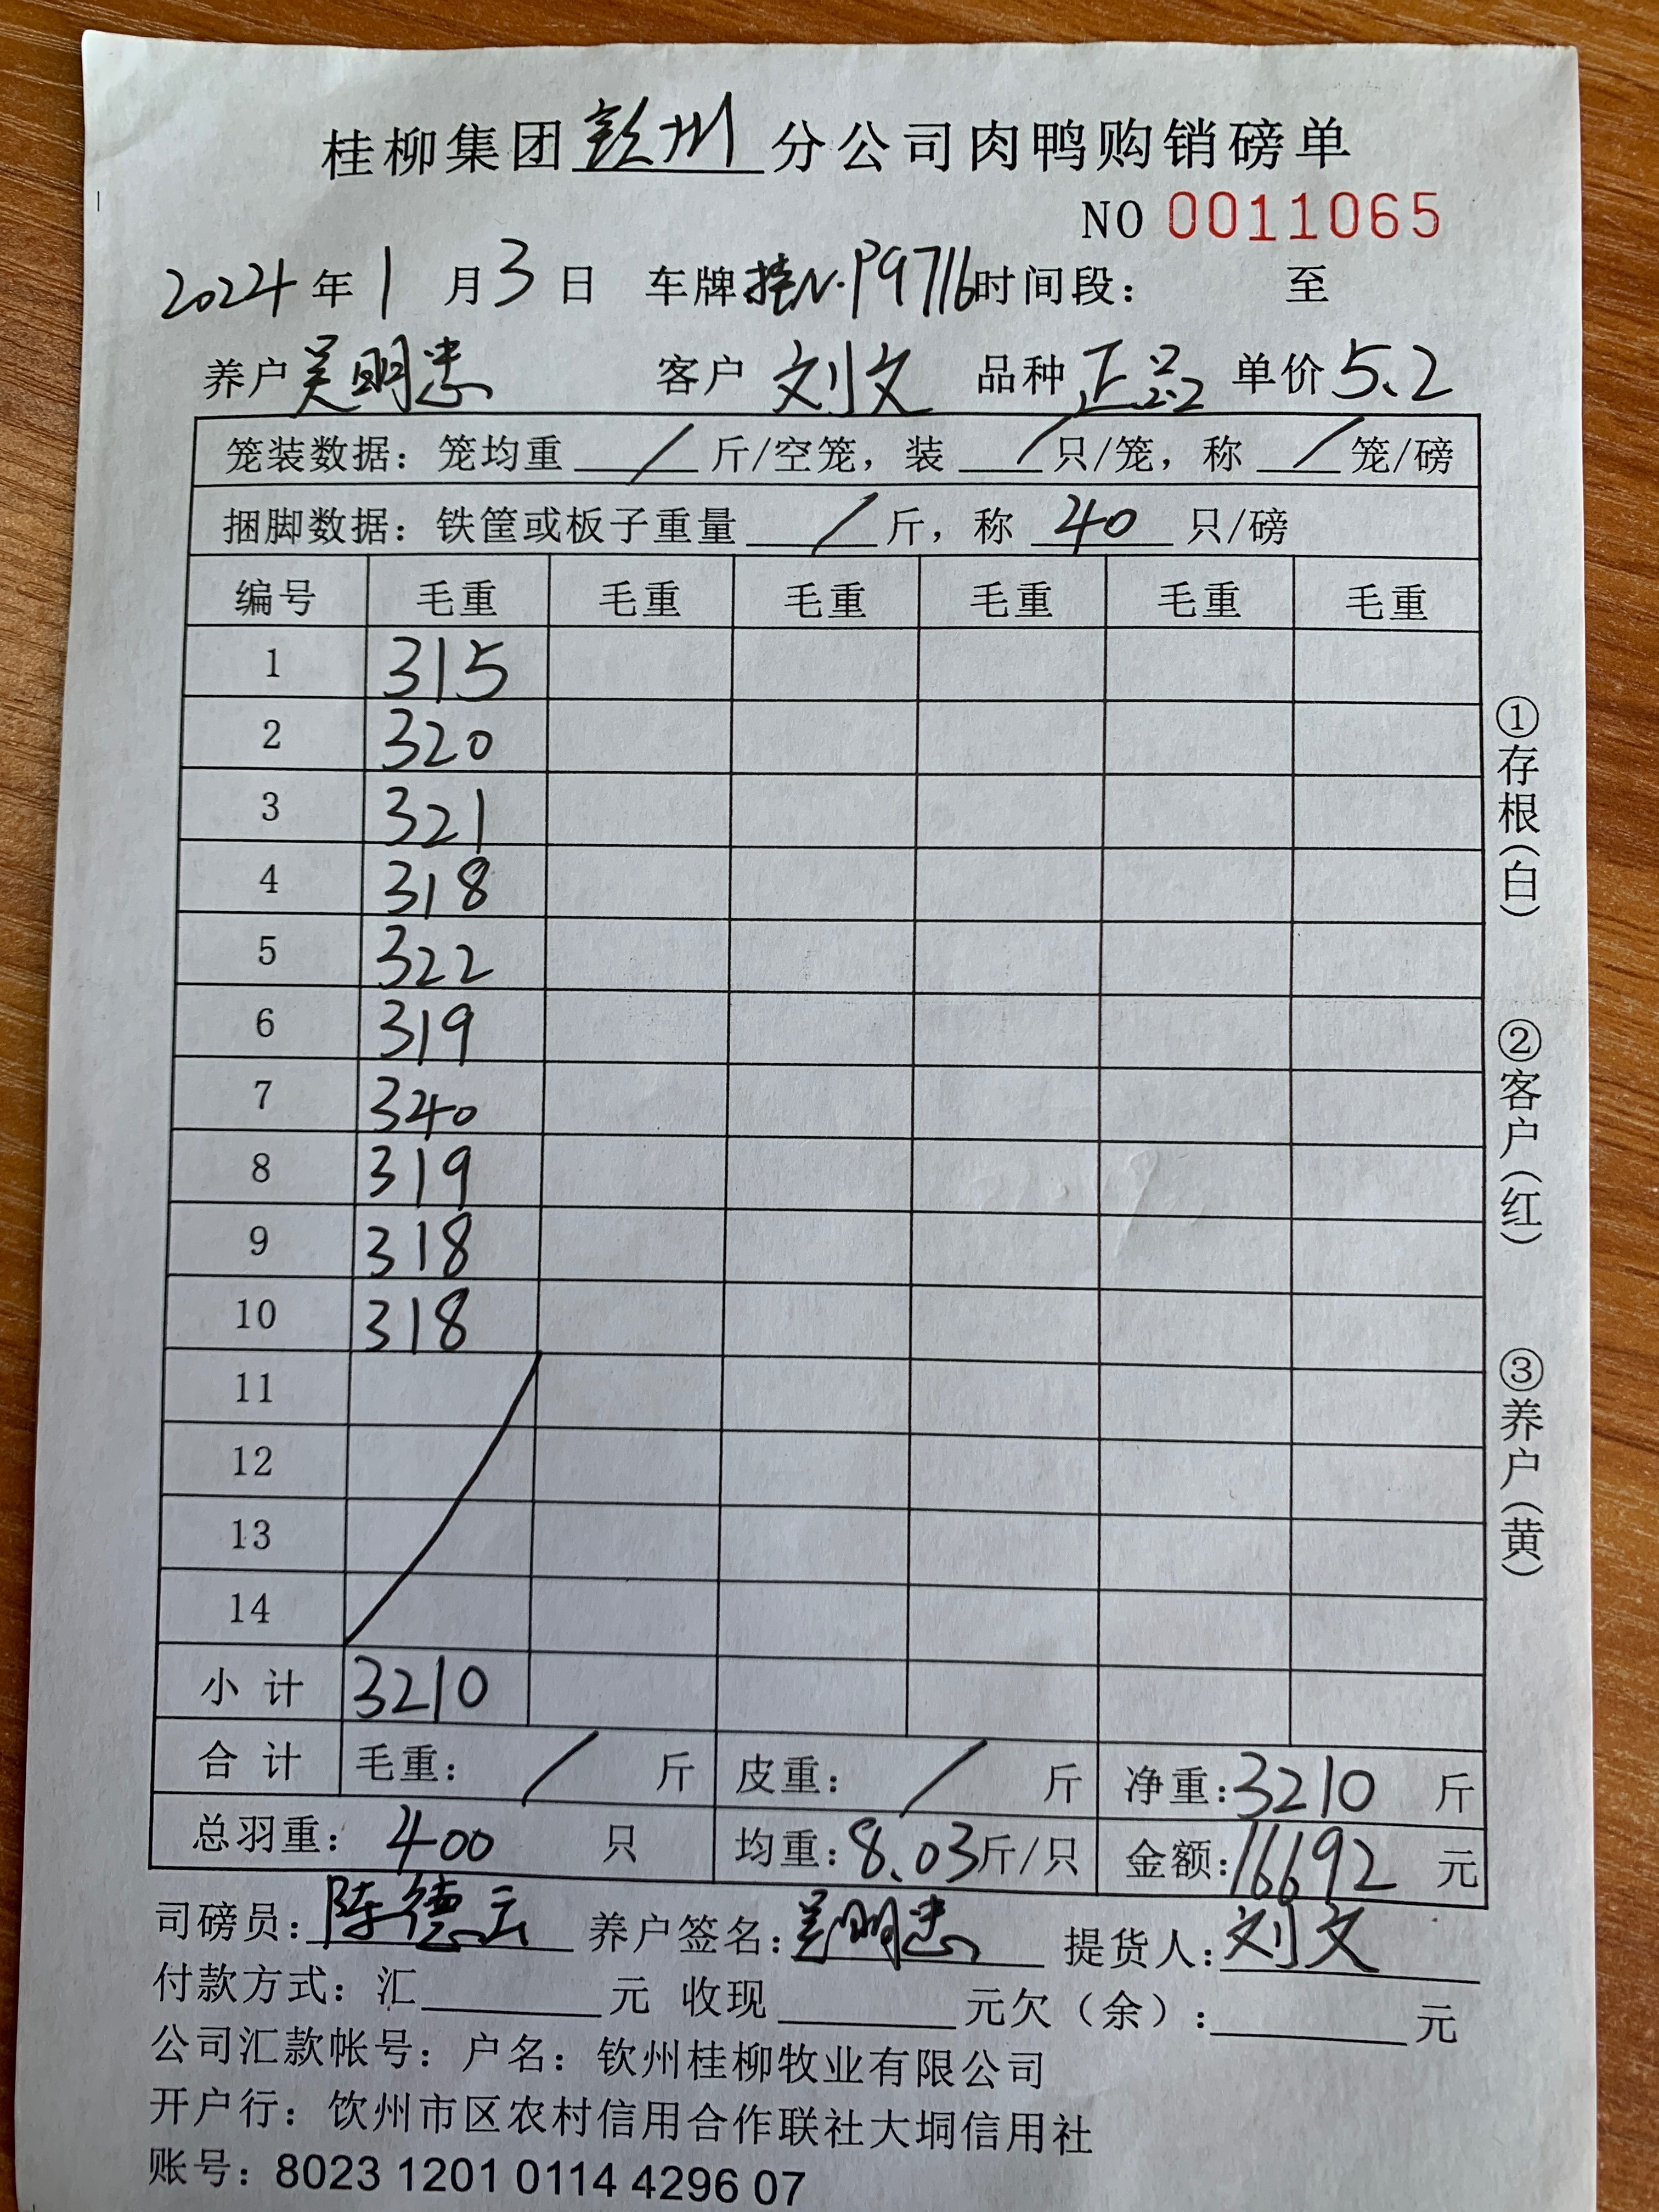 桂柳集团钦州分公司肉鸭购销磅单
NO 0011065
2024年1月3日 车牌桂N·P9716时间段: 至
养户吴明忠 客户刘文 品种正品 单价5.2
笼装数据:笼均重/斤/空笼,装/只/笼,称/笼/磅
捆脚数据:铁筐或板子重量/斤,称40只/磅
编号 毛重 毛重 毛重 毛重 毛重 毛重
1 315
2 320
3 321
4 318
5 322
6 319
7 340
8 319
9 318
10 318
11
12
13
14
小计 3210
合计 毛重:/斤 皮重:/斤 净重:3210斤
总羽重:400只 均重:8.03斤/只 金额:16692元
司磅员:陈德云 养户签名:吴明忠 提货人:刘文
付款方式:汇______元 收现______元欠(余):______元
公司汇款帐号:户名:钦州桂柳牧业有限公司
开户行:钦州市区农村信用合作联社大垌信用社
账号:8023 1201 0114 4296 07
①存根(白)
②客户(红)
③养户(黄)